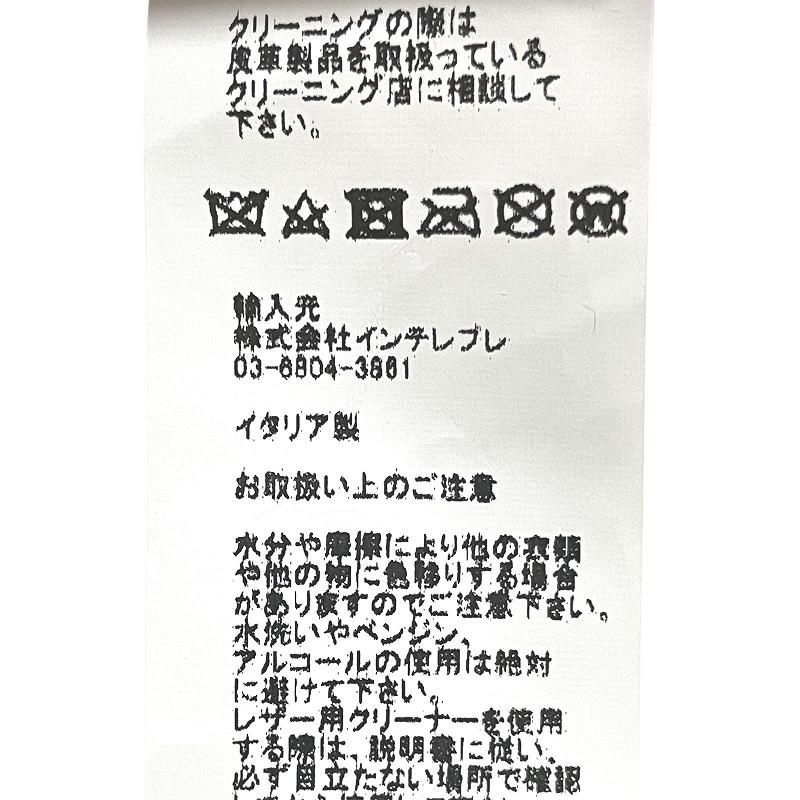 クリーニングの際は
皮革製品を取扱っている
クリーニング店に相談して
下さい。
輸入元
株式会社インテレプレ
03-6804-3861
イタリア製
お取扱い上のご注意
水分や摩擦により他の衣類
や他の物に色移りする場合
がありますのでご注意下さい。
水洗いやベンジン、
アルコールの使用は絶対
に避けて下さい。
レザー用クリーナーを使用
する際は、説明書に従い、
必ず目立たない場所で確認